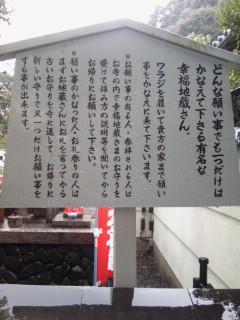 どんな願い事でも一つだけは
かなえて下さる有名な
幸福地蔵さん。
ワラジを履いて貴方の家まで願い
事をかなえに来て下さいます。
※お願い事の有る人・参拝される人は
お寺の内で幸福地蔵さまのお守りを
受けて拝み方の説明等を聞いてから
お帰りにお願いして下さい。
※願い事のかなった人・お礼参りの人は
まずお地蔵さんにお礼を言ってから
古いお守りを寺に返して、お帰りに
新しい守りで又一つだけお願い事を
する事が出来ます。